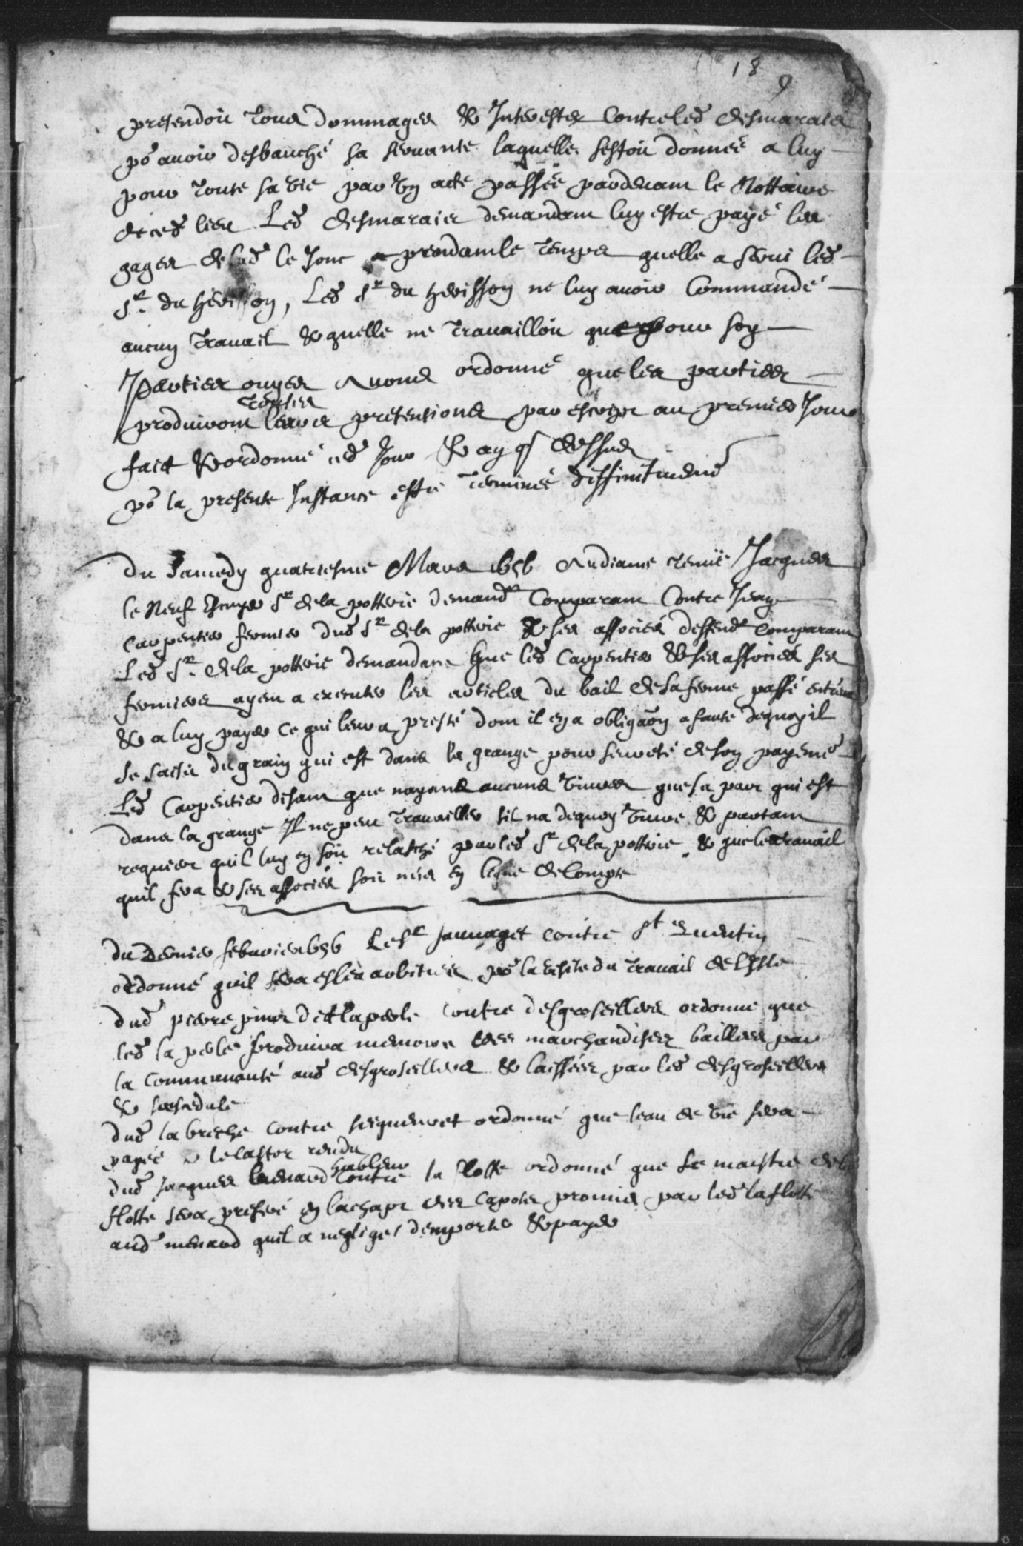 18 9
pretendoit tous dommages & Interestz Contre led desmarais
po avoir desbauché sa servante laquelle sestoit donnée a luy
pour toute sa vie par un acte passée pardevant le Nottaire
de ced lieu Led desmarais demandant luy estre payé les
gages de lad le Jonc prendant le temps quelle a servi led
Sr du herisson, Led Sr du herisson ne luy avoir Commandé
aucun travail & quelle ne travailloit que pour soy
Parties ouyes Avons ordonné que les parties
produiront toutes leurs pretentions par escript au premier Jour
faict & ordonné ced Jour & an q dessus
po la presente Instance estre terminée diffinitivemt
Du Samedy quatriesme Mars 1656 Audiance tenue Jacques
le Neuf Escuyer Sr de la potterie demandr Comparant Contre Jean
Carpentier fermier dud Sr de la potterie & ses associés deffendr comparant
Led Sr de la potterie demandant que led Carpentier & ses associés ses
fermiers ayent a executer les articles du bail de sa ferme passé entreux
& a luy payer ce qui leur a presté dont il en a obligaon a faute dequoy il
se saisit du grain qui est dans la grange pour seureté de son payemt
Led Carpentier disant que nayant aucuns vivres que sa part qui est
dans la grange Il ne peut travailler sil na dequoy vivre & partant
requiert quil luy en soit relasché par led Sr de la potterie & que le travail
quil fera & ses associés soit mis en ligne de Compte
du dernier febvrier 1656 Le Sr Jannaget contre St Quentin
ordonné quil sera eslu arbitres po la visite du travail de lisle
dud pierre pinot dit laperle contre desgroseillers ordonné que
led la perle produira memoire des marchandises baillées par
la communauté aud desgroseillers & laissées par led desgroseillers
& sa cedule
dud la breche contre seigneuret ordonné que leau de vie sera
payée & le castor rendu
dud Jacques menard sableur contre la flotte ordonné que le maistre de
flotte sera preferé en lachapt des capots promis par led la flotte
aud menard quil a negligé demporter & payer